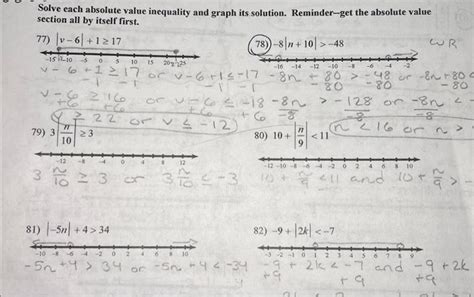 Solve each absolute value inequality and graph its solution. Reminder--get the absolute value
section all by itself first.
77) |v - 6| + 1 ≥ 17
78) -8|n + 10| > -48
WR
-15 -10 -5 0 5 10 15 20 25
-16 -14 -12 -10 -8 -6 -4 -2
v - 6 + 1 ≥ 17 or v - 6 + 1 ≤ -17
-8n + 80 > -48 or -8n + 80 <
-1 -1 -1 -1
-80 -80 -80
v - 6 ≥ 16 or v - 6 ≤ -18
-8n > -128 or -8n <
+6 +6 +6 +6
-8 -8
v ≥ 22 or v ≤ -12
n < 16 or n >
79) 3|n/10| ≥ 3
80) 10 + |n/9| < 11
-12 -8 -4 0 4 8 12
-12 -10 -8 -6 -4 -2 0 2 4 6 8 10
3 n/10 ≥ 3 or 3 n/10 ≤ -3
10 + n/9 < 11 and 10 + n/9 >
81) |-5n| + 4 > 34
82) -9 + |2k| < -7
-10 -8 -6 -4 -2 0 2 4 6 8 10
-3 -2 -1 0 1 2 3 4 5 6 7 8 9
-5n + 4 > 34 or -5n + 4 < -34
-9 + 2k < -7 and -9 + 2k
+9 +9 +9